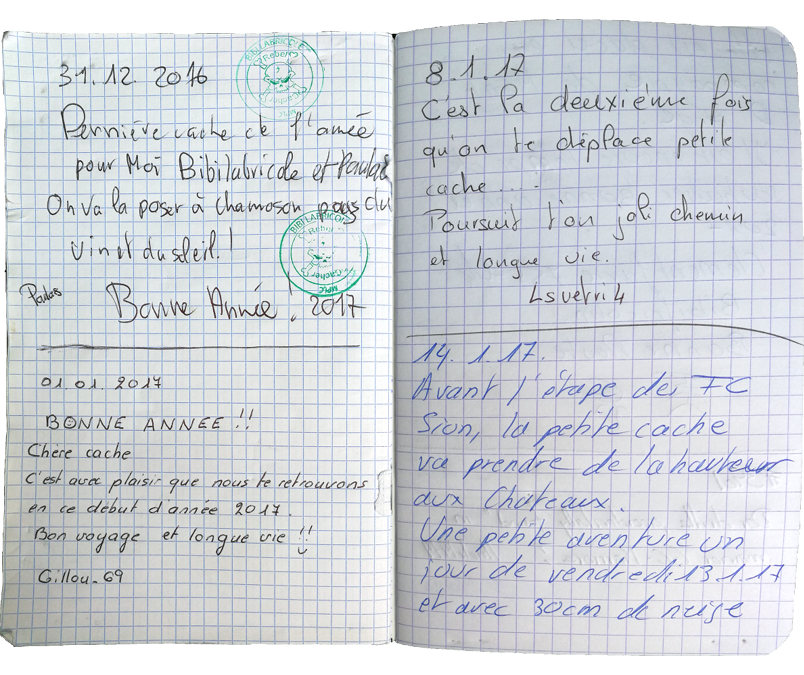 31.12.2016
Dernière cache de l'année
pour Moi Bibilabricole et Paulas
On va la poser à Chamoson pays du
vin et du soleil!
Paulas
Bonne Année! 2017
BIBILABRICOLE
Rebel
Cacher
BIBILABRICOLE
Rebel
Cacher
01.01.2017
BONNE ANNEE!!
Chère cache
C'est avec plaisir que nous te retrouvons
en ce début d'année 2017.
Bon voyage et longue vie!!
Gillou-69
8.1.17
C'est la deuxième fois
qu'on te déplace petite
cache....
Poursuit ton joli chemin
et longue vie.
14.1.17.
Avant l'étape des FC
Sion, la petite cache
va prendre de la hauteur
aux Chateaux.
Une petite aventure un
jour de vendredi 13.1.17
et avec 30cm de neige